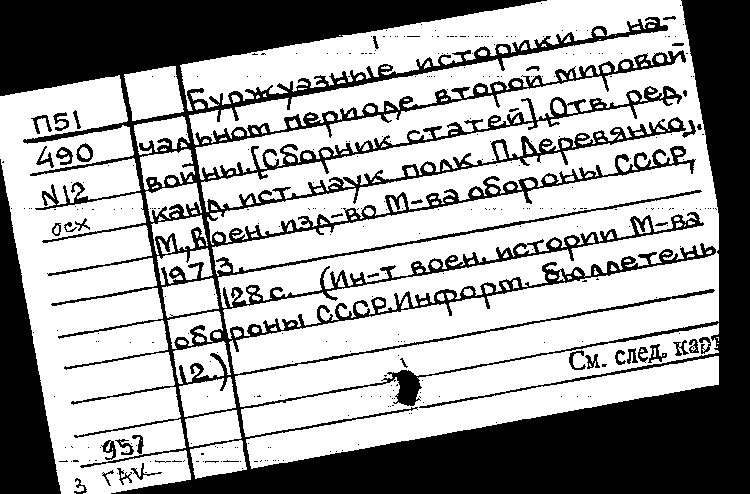 Буржуазные историки о на-
П51
чальном периоде второй мировой
490
войны. [Сборник статей]. [Отв. ред.
N12
канд. ист. наук полк. П. Деревянко].
осх
М., Воен. изд-во М-ва обороны СССР,
1973.
128 с. (Ин-т воен. истории М-ва
обороны СССР. Информ. бюллетень.
12.)
См. след. карт
957
3